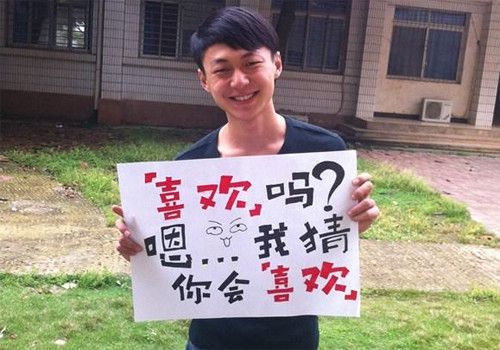 「喜欢」吗?
嗯…我猜
你会「喜欢」